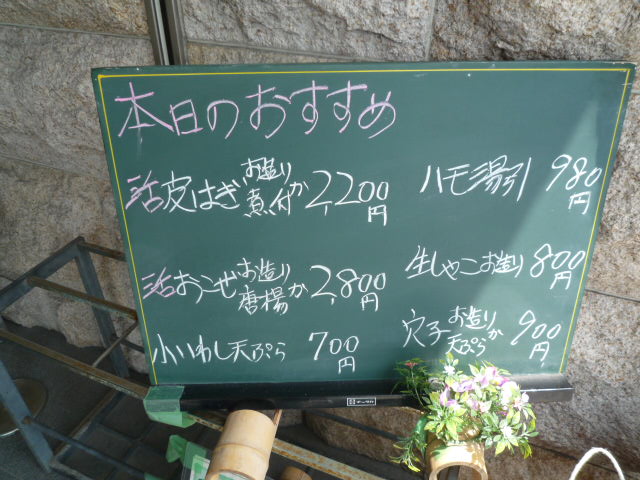 本日のおすすめ
活皮はぎ お造りか煮付 2,200円
ハモ湯引 980円
活おこぜ お造りか唐揚 2,800円
生しゃこお造り 800円
小いわし天ぷら 700円
穴子 お造りか天ぷら 900円